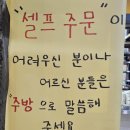 "셀프 주문"이
어려우신 분이나
어르신 분들은
"주방"으로 말씀해
주세요